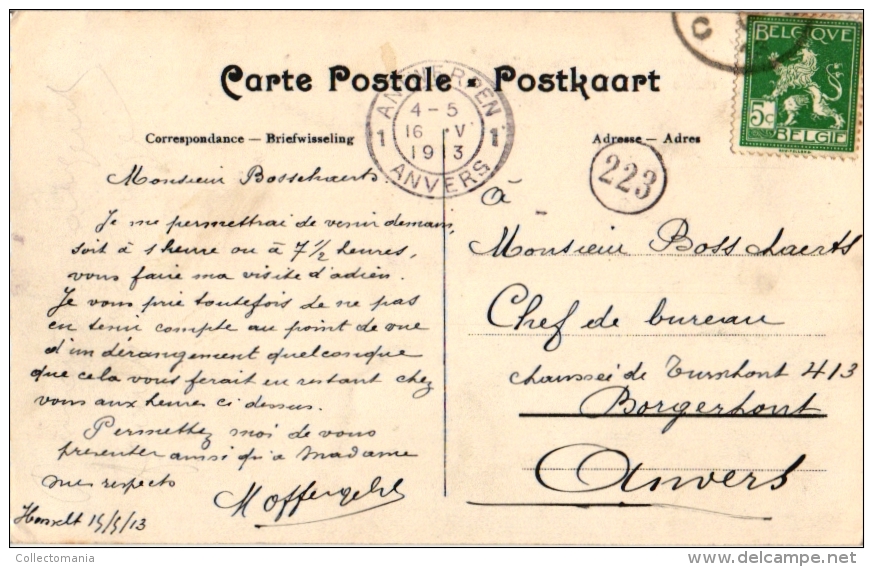 BELGIQUE
5c
BELGIË
Carte Postale - Postkaart
ANTWERPEN
4-5
1 16 V 1
1913
ANVERS
Correspondance — Briefwisseling
Adresse — Adres
223
Monsieur Bosschaerts.
Je me permettrai de venir demain,
soit à 1 heure ou à 7 1/2 heures,
vous faire ma visite d'adieu.
Je vous prie toutefois de ne pas
en tenir compte au point de vue
d'un dérangement quelconque
que cela vous ferait en restant chez
vous aux heures ci dessus.
Permettez moi de vous
présenter ainsi qu'à Madame
mes respects
Hasselt 15/5/13
à
Monsieur Bosschaerts
Chef de bureau
chaussée de Turnhout 413
Borgerhout
Anvers
Collectomania
www.delcampe.net